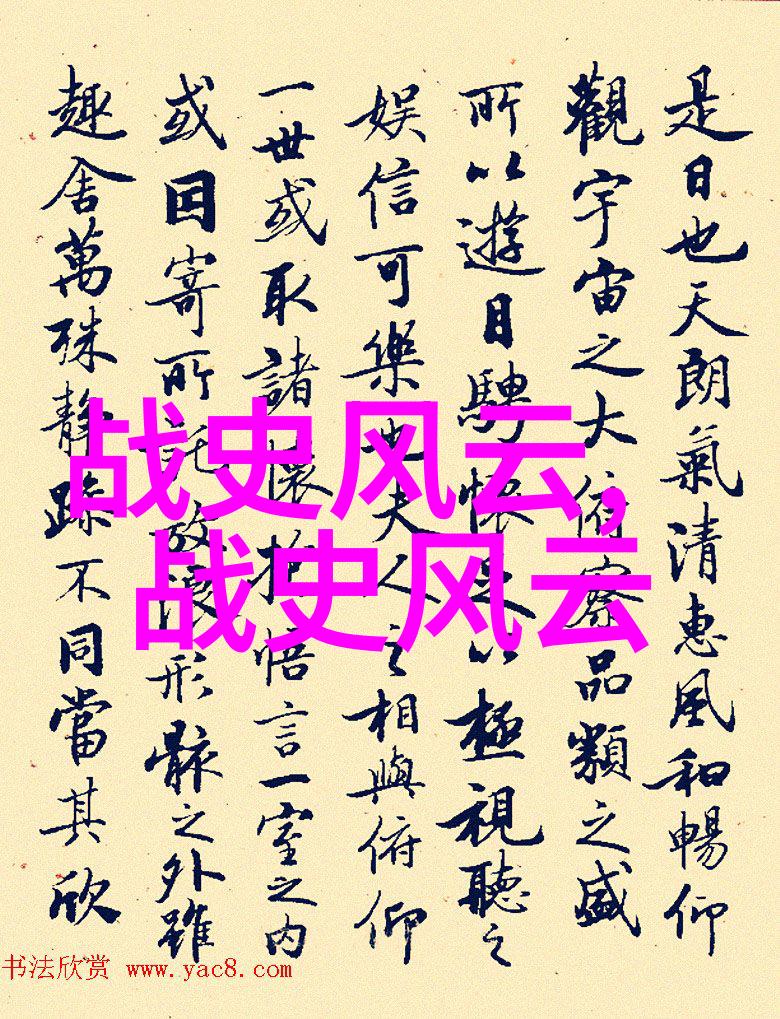 是日也天朗氣清惠風和暢仰
觀宇宙之大俯察品類之盛
所以遊目騁懷足以極視聽之
娱信可樂也夫人之相與俯仰
一世或取諸懷抱悟言一室之内
或因寄所託放浪形骸之外雖
趣舍萬殊静躁不同當其欣
战史风云,
战史风云
书法欣赏 www.yac8.com